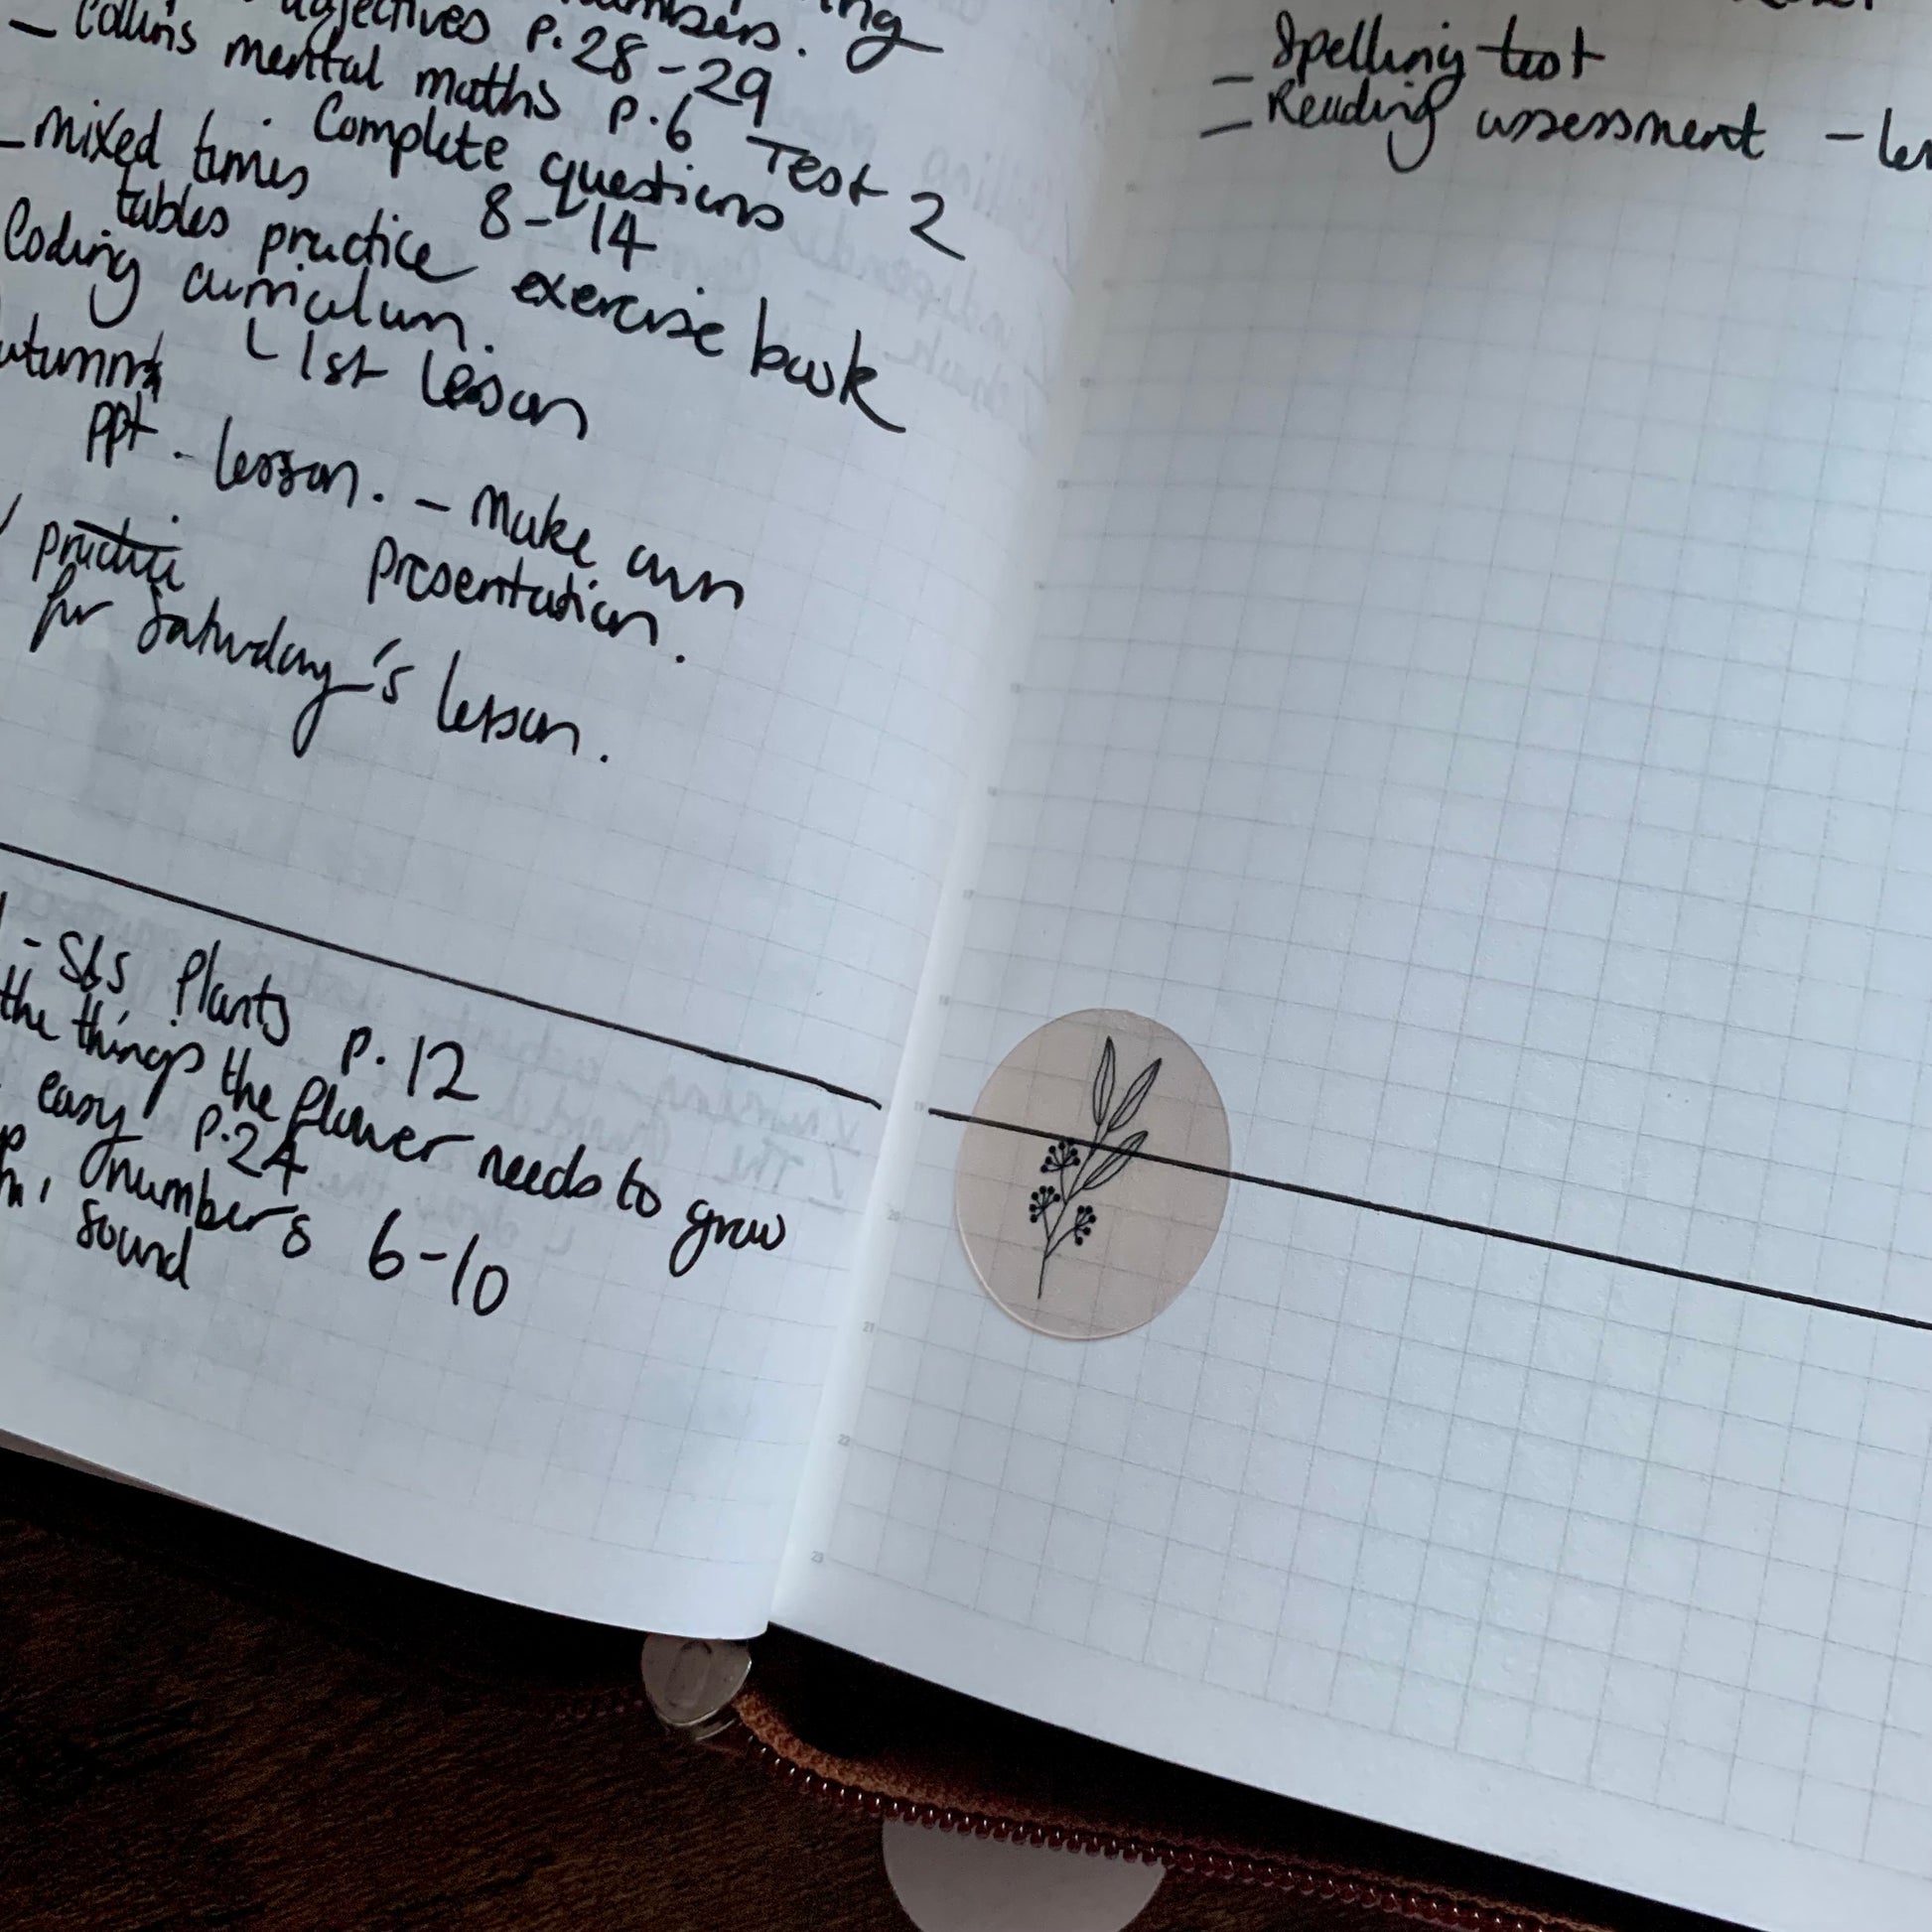 adjectives p.28-29
- Collins mental maths p.6 Test 2
Complete questions
8-14
- mixed times
tables practice exercise book
Coding curriculum.
1st lesson
ppt. lesson. - Make own
presentation.
practice
for Saturday's lesson.
- S&S Plants p.12
the things the flower needs to grow
easy p.24
numbers 6-10
sound
Spelling test
- Reading assessment
18
19
20
21
22
23